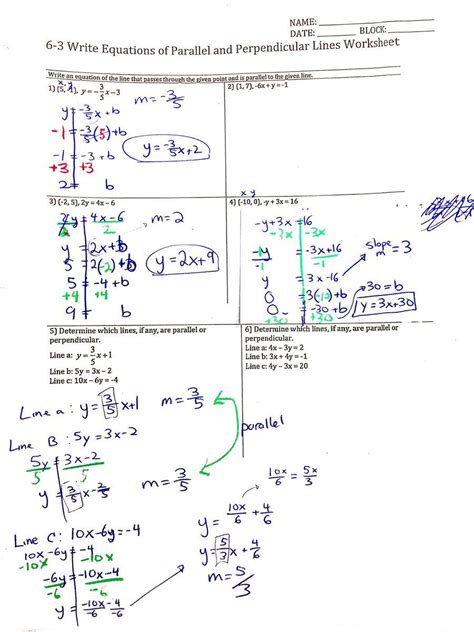 NAME:
DATE: BLOCK:
6-3 Write Equations of Parallel and Perpendicular Lines Worksheet
Write an equation of the line that passes through the given point and is parallel to the given line.
x, y
1) (5, -1), y = -3/5 x - 3
m = -3/5
y = -3/5 x + b
-1 = -3/5 (5) + b
-1 = -3 + b
+3 +3
2 = b
y = -3/5 x + 2
2) (1, 7), -6x + y = -1
3) (-2, 5), 2y = 4x - 6
2y = 4x - 6
2 2
m = 2
y = 2x + b
5 = 2(-2) + b
5 = -4 + b
+4 +4
9 = b
y = 2x + 9
x y
4) (-10, 0), -y + 3x = 16
-y + 3x = 16
-3x -3x
-y = -3x + 16
-1 -1
slope
m = 3
y = 3x - 16
0 = -30 + b
+30 +30
30 = b
y = 3x + 30
5) Determine which lines, if any, are parallel or
perpendicular.
Line a: y = 3/5 x + 1
Line b: 5y = 3x - 2
Line c: 10x - 6y = -4
6) Determine which lines, if any, are parallel or
perpendicular.
Line a: 4x - 3y = 2
Line b: 3x + 4y = -1
Line c: 4y - 3x = 20
Line a: y = 3/5 x + 1 m = 3/5
parallel
Line B: 5y = 3x - 2
5y = 3x - 2
5 5
y = 3/5 x - 2/5 m = 3/5
Line C: 10x - 6y = -4
10x - 6y = -4
-10x -10x
-6y = -10x - 4
-6 -6
y = -10x - 4
-6 -6
10x/6 = 5x/3
y = 10x/6 + 4/6
y = 5/3 x + 4/6
m = 5/3